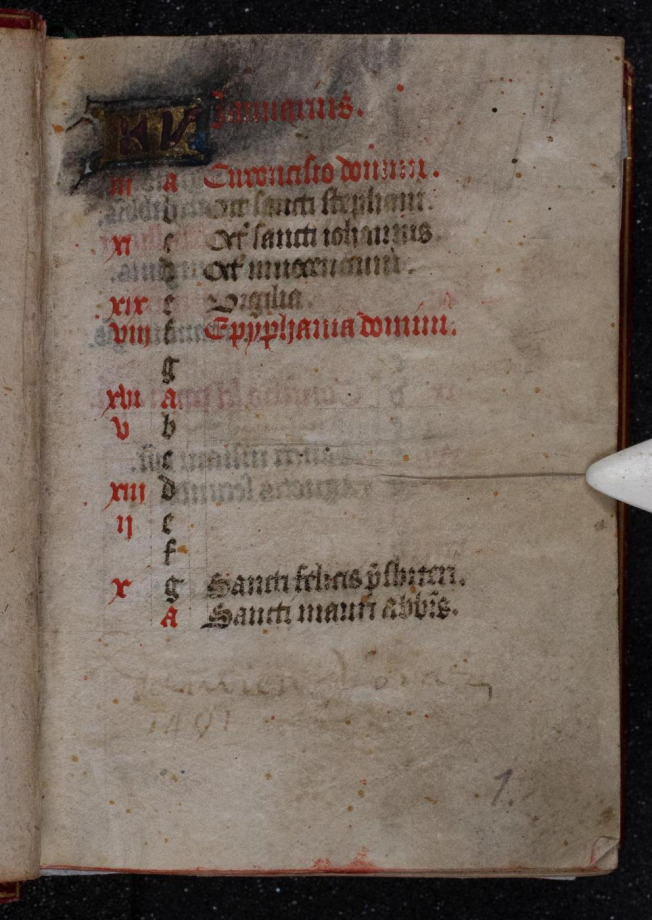 KL Januarius.
iii a Circoncisio domini.
b Oct sancti stephani.
xi c Oct sancti iohannis.
d Oct innocencium.
xix e Vigilia.
viii f Epyphania domini.
g
xvi a
v b
c
xiii d
ii e
f
x g Sancti felicis pbriteri.
a Sancti mauri abbis.
1491
1.